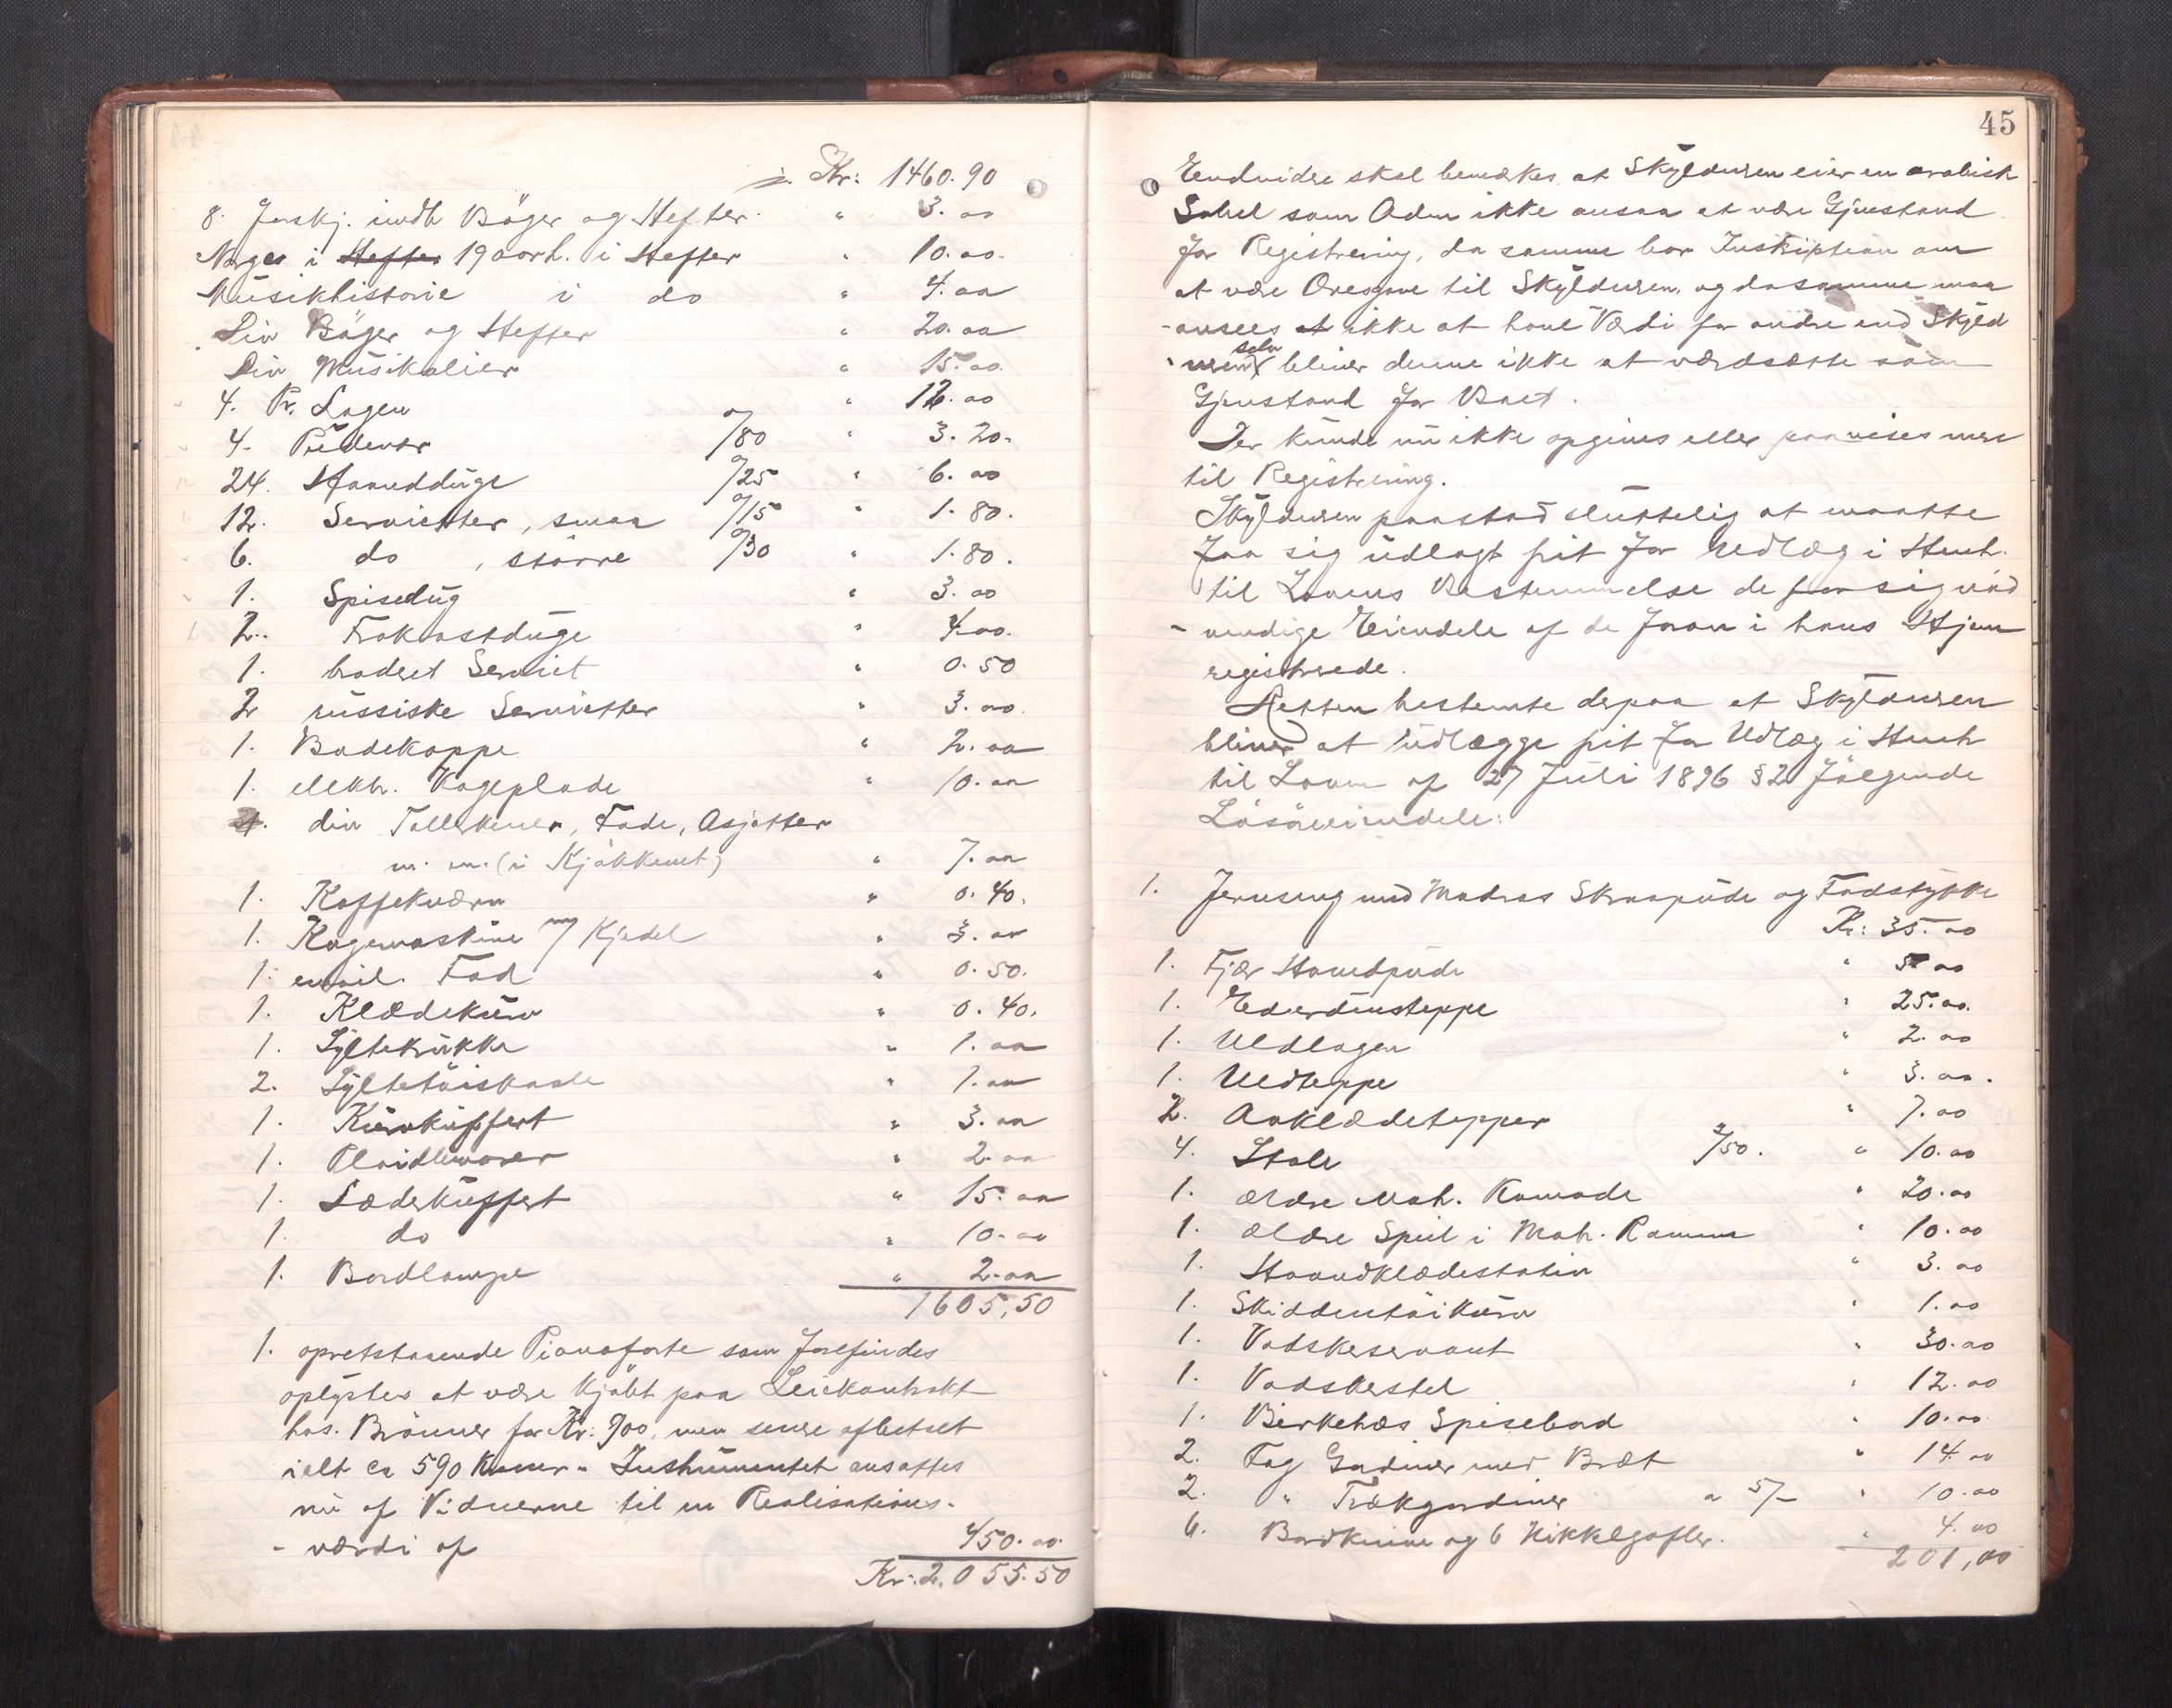 Kr: 1460.90
8. forskj. indb Bøger og Hefter. " 3.00
Norges i Hefter 19 aarh. i Hefter " 10.00.
Musikhistorie i do " 4.00
Div Bøger og Hefter " 20.00
Div Musikalier " 15.00.
4. Pr. Lagen " 12.00
4. Pudevar a/80 " 3.20.
24. Haandduge a/25 " 6.00
12. Servietter, smaa a/15 " 1.80.
6. do , større a/30 " 1.80.
1. Spisedug " 3.00
2. Frokostduge " 4.00.
1. broderet Serviet " 0.50
2 russiske Servietter " 3.00.
1. Badekappe " 2.00
1. elektr. Kogeplade " 10.00
div Tallerkener, Fade, Asjetter
m. m. (i Kjøkkenet) " 7.00
1. Kaffekværn " 0.40.
1. Kogemaskine m/ Kjedel " 3.00
1. email. Fad " 0.50.
1. Klædekurv " 0.40.
1. Syltekrukke " 1.00
2. Syltetøiskaale " 1.00
1. Kurvkuffert " 3.00
1. Plaidlemmer " 2.00
1. Læderkuffert " 15.00
1. do " 10.00
1. Bordlampe " 2.00
1605,50
1. opretstaaende Pianoforte som forefindes
oplystes at være kjøbt paa Leiekontrakt
hos. Brønner for Kr: 900, men senere afbetalt
ialt ca 590 Kroner. Instrumentet ansattes
nu af Vidnerne til en Realisations-
- værdi af 450.00.
Kr: 2.055.50
45
Endvidere skal bemærkes at Skyldneren eier en arabisk
Sabel som Adm ikke ansaa at være Gjenstand
for Registrering, da samme bær Inskription om
at være Æresgave til Skyldneren. og da samme maa
- ansees at ikke at have Værdi for andre end Skyld
- neren selv bliver denne ikke at værdsætte som
Gjenstand for Boet.
Der kunde nu ikke opgives eller paavises mere
til Registrering.
Skyldneren paastod sluttelig at maatte
faa sig udlagt frit for Udlæg i Henh.
til Lovens Bestemmelse de for sig nød
- vendige Eiendele af de foran i hans Hjem
registrerede.
Retten bestemte derpaa at Skyldneren
bliver at udlægge frit for Udlæg i Henh
til Loven af 27 Juli 1896 § 2 følgende
Løsøreeiendele:
1. Jernseng med Madras Skraapude og Fodstykke
Kr: 35.00
1. Fjær Hovedpude " 5.00
1. Ederdunsteppe " 25.00.
1. Uldlagen " 2.00
1. Uldteppe " 3.00.
2. Anklædetepper " 7.00
4. Stole 2/50. " 10.00
1. ældre Mah. Komode " 20.00
1. ældre Speil i Mah. Ramme " 10.00
1. Haandklædestativ " 3.00
1. Skiddentøikurv " 1.00
1. Vadskeservant " 30.00
1. Vadskestel " 12.00
1. Birketræs Spisebord " 10.00
2. Fag Gardiner med Bræt " 14.00
2. " Trækgardiner a 5/- " 10.00
6. Bordknive og 6 Nikkelgafler. " 4.00
201,00